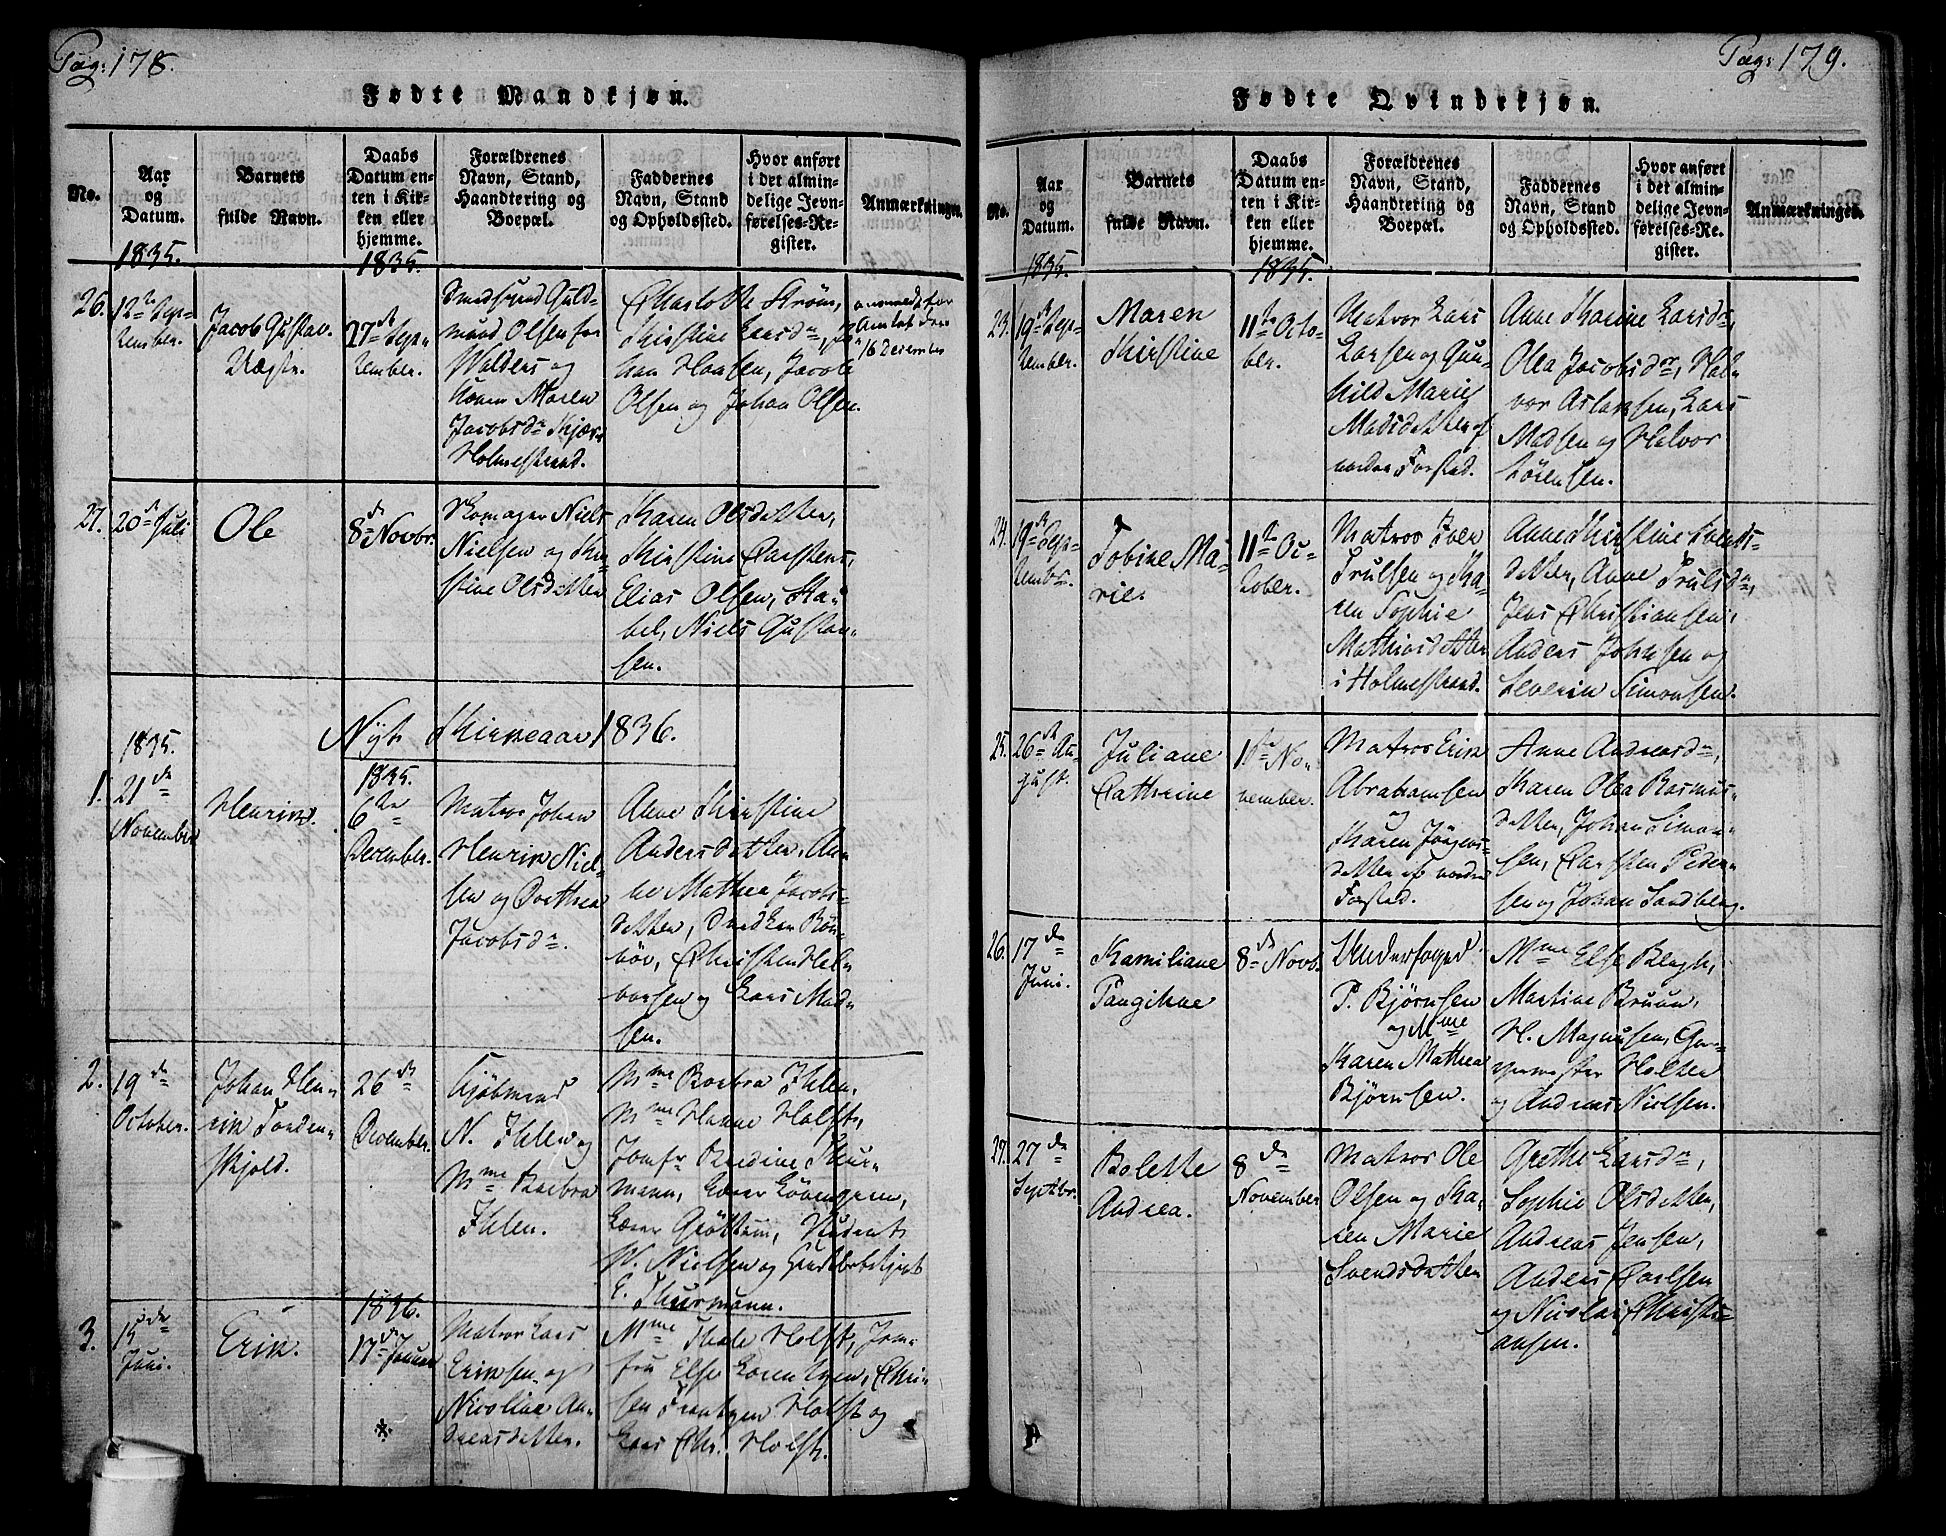 Pag: 178.
Fødte Mandkjøn.
No.
Aar
og
Datum.
1835.
Barnets
fulde Navn.
Daabs
Datum en-
ten i Kir-
ken eller
hjemme.
1835.
Forældrenes
Navn, Stand,
Haandtering og
Boepæl.
Faddernes
Navn, Stand
og Opholdssted.
Hvor anført
i det almin-
delige Jevn-
førelses-Re-
gister.
Anmærkninger.
26.
12te Sep-
tember.
Jacob Gustav
27de Sep-
tember.
Guld-
mund Olsen fra
Walders og
Konen Maren
Jacobsdr Kjær
Holmestrand.
Charlotte Strøm,
Kirstine Larsdr, Jo-
han Hansen, Jacob
Olsen og Johan Olsen.
anmeldt for
Amtet den
16 December
27.
20de Juli
Ole
8de Novbr.
Skomager Niels
Nielsen og Kir-
stine Olsdatter
Karen Olsdatter,
Kirstine Carstens,
Elias Olsen, Sta-
bel, Niels Gustav-
sen.
Nyt Kirkeaar 1836.
1835.
1.
21de
November
Henrik.
1835.
6te
December.
Matros Johan
Henrik Niel-
sen og Dorthea
Jacobsdr.
Anne Kirstine
Andersdatter, An-
ne Mathea Jacobs-
datter,
Christen Hal-
vorsen og Lars Mad-
sen.
2.
19de
October.
Johan Hen-
rik Torden-
skjold.
26de
December.
Kjøbmand
N. Ihlen og
Mme Barbra
Ihlen.
Mme Barbra Ihlen,
Mme Hanne Holst,
Jomfr Bredine Thur-
mann,
Grøttum, Student
W. Nielsen og
E. Thurmann.
3.
15de
Juni.
Erik.
1836.
17de Januar
*
Matros Lars
Eriksen og
Nicoline An-
dreasdatter.
Mme Thale Holst, Jom-
fru Else Karen
Holst og
Lars Chr. Holst.
Pag: 179.
Fødte Qvindekjøn.
No.
Aar
og
Datum.
1835.
Barnets
fulde Navn.
Daabs
Datum en-
ten i Kir-
ken eller
hjemme.
1835.
Forældrenes
Navn, Stand,
Haandtering og
Boepæl.
Faddernes
Navn, Stand
og Opholdssted.
Hvor anført
i det almin-
delige Jevn-
førelses-Re-
gister.
Anmærkninger.
23.
19de Sep-
tember.
Maren
Kirstine
11te Octo-
ber.
Matros Lars
Larsen og Gun-
hild Marie
Madsdatter af
nordre Forstad.
Anne Karine Larsdr,
Olea Jacobsdr, Hal-
vor Aslaksen, Lars
Madsen og Halvor
Sørensen.
24.
19de Sep-
tembr.
Tobine Ma-
rie.
11te Oc-
tober.
Matros Iver
Trulsen og Ka-
ren Sophie
Mathiasdatter
i Holmestrand.
Anne Kirstine Svends-
datter, Anne Trulsdr,
Jens Christiansen,
Anders Johnsen og
Severin Simonsen.
25.
26de Au-
gust.
Juliane
Cathrine
1ste No-
vember.
Matros Erik
Abrahamsen
og
Karen Jørgens-
datter af nordre
Forstad.
Anne Andreasdr,
Karen Olea Rasmus-
datter, Johan Simon-
sen, Carsten Peder-
sen og Johan Sandberg.
26.
17de
Juni.
Kamiliane
8de Novb.
P. Bjørnsen
og Mme
Karen Mathea
Bjørnsen.
Mme Else Bergh,
Martine Bruun,
H. Magnusen, Gar-
vermester Holter
og Andreas Nielsen.
27.
27de
Septbr.
Bolette
Andrea.
8de
November
Matros Ole
Olsen og Ka-
ren Marie
Svendsdatter
Grethe Larsdr,
Sophie Olsdatter,
Andreas Jensen,
Anders Carlsen
og Nicolai Christi-
ansen.